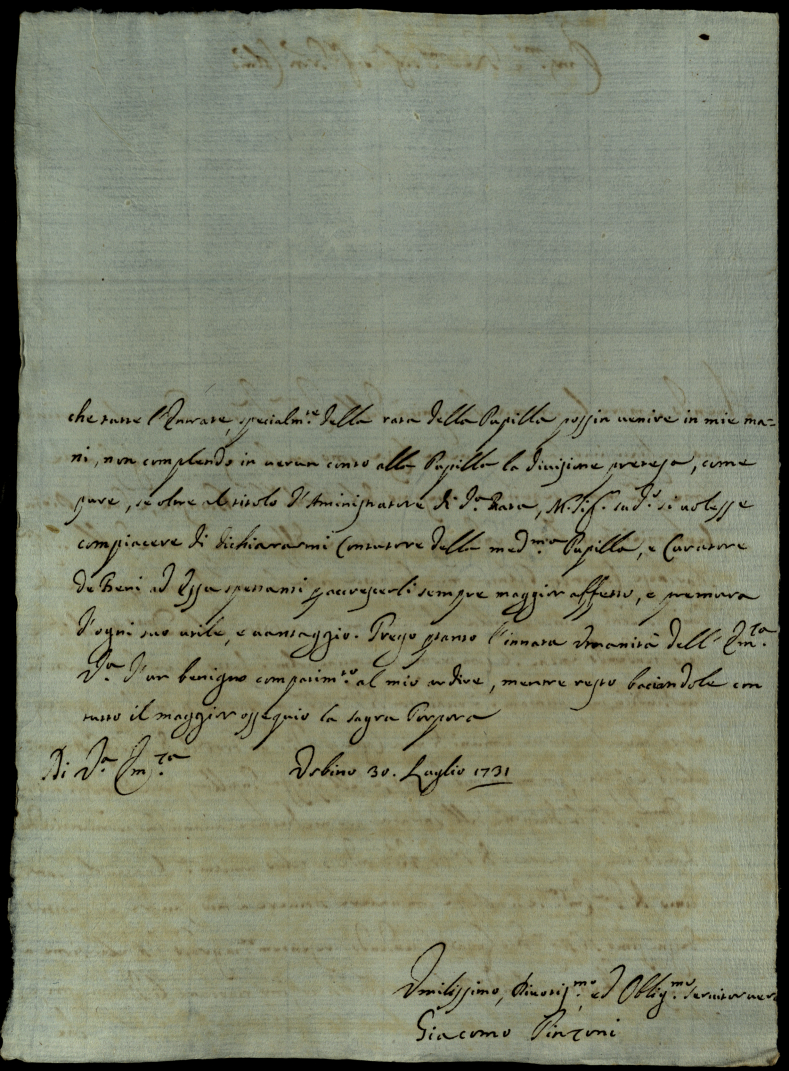 che tutte l'Entrate, specialm.te della rata della Pupilla possin uenire in mie ma=
ni, non complendo in uerun conto alla Pupilla la diuisione pretesa, come
pure, se oltre al titolo d'Aministratore di d.a Rata, M. S.r sud.o si uolesse
compiacere di dichiararmi Contutore della med.ma Pupilla, e Curatore
de Beni ad Essa spettanti p accrescerli sempre maggior affetto, e premura
d'ogni suo utile, e uantaggio. Prego ptanto l'innata Vmanità dell' Em.za
V.a d'un benigno compatim.to al mio ardire, mentre resto baciandole con
tutto il maggior ossequio la sagra Porpora
Di V.a Em.za Vrbino 30. Luglio 1731
Vmilissimo, Diuotis.mo ed Oblig.mo Seruitor uero
Giacomo Pinzoni